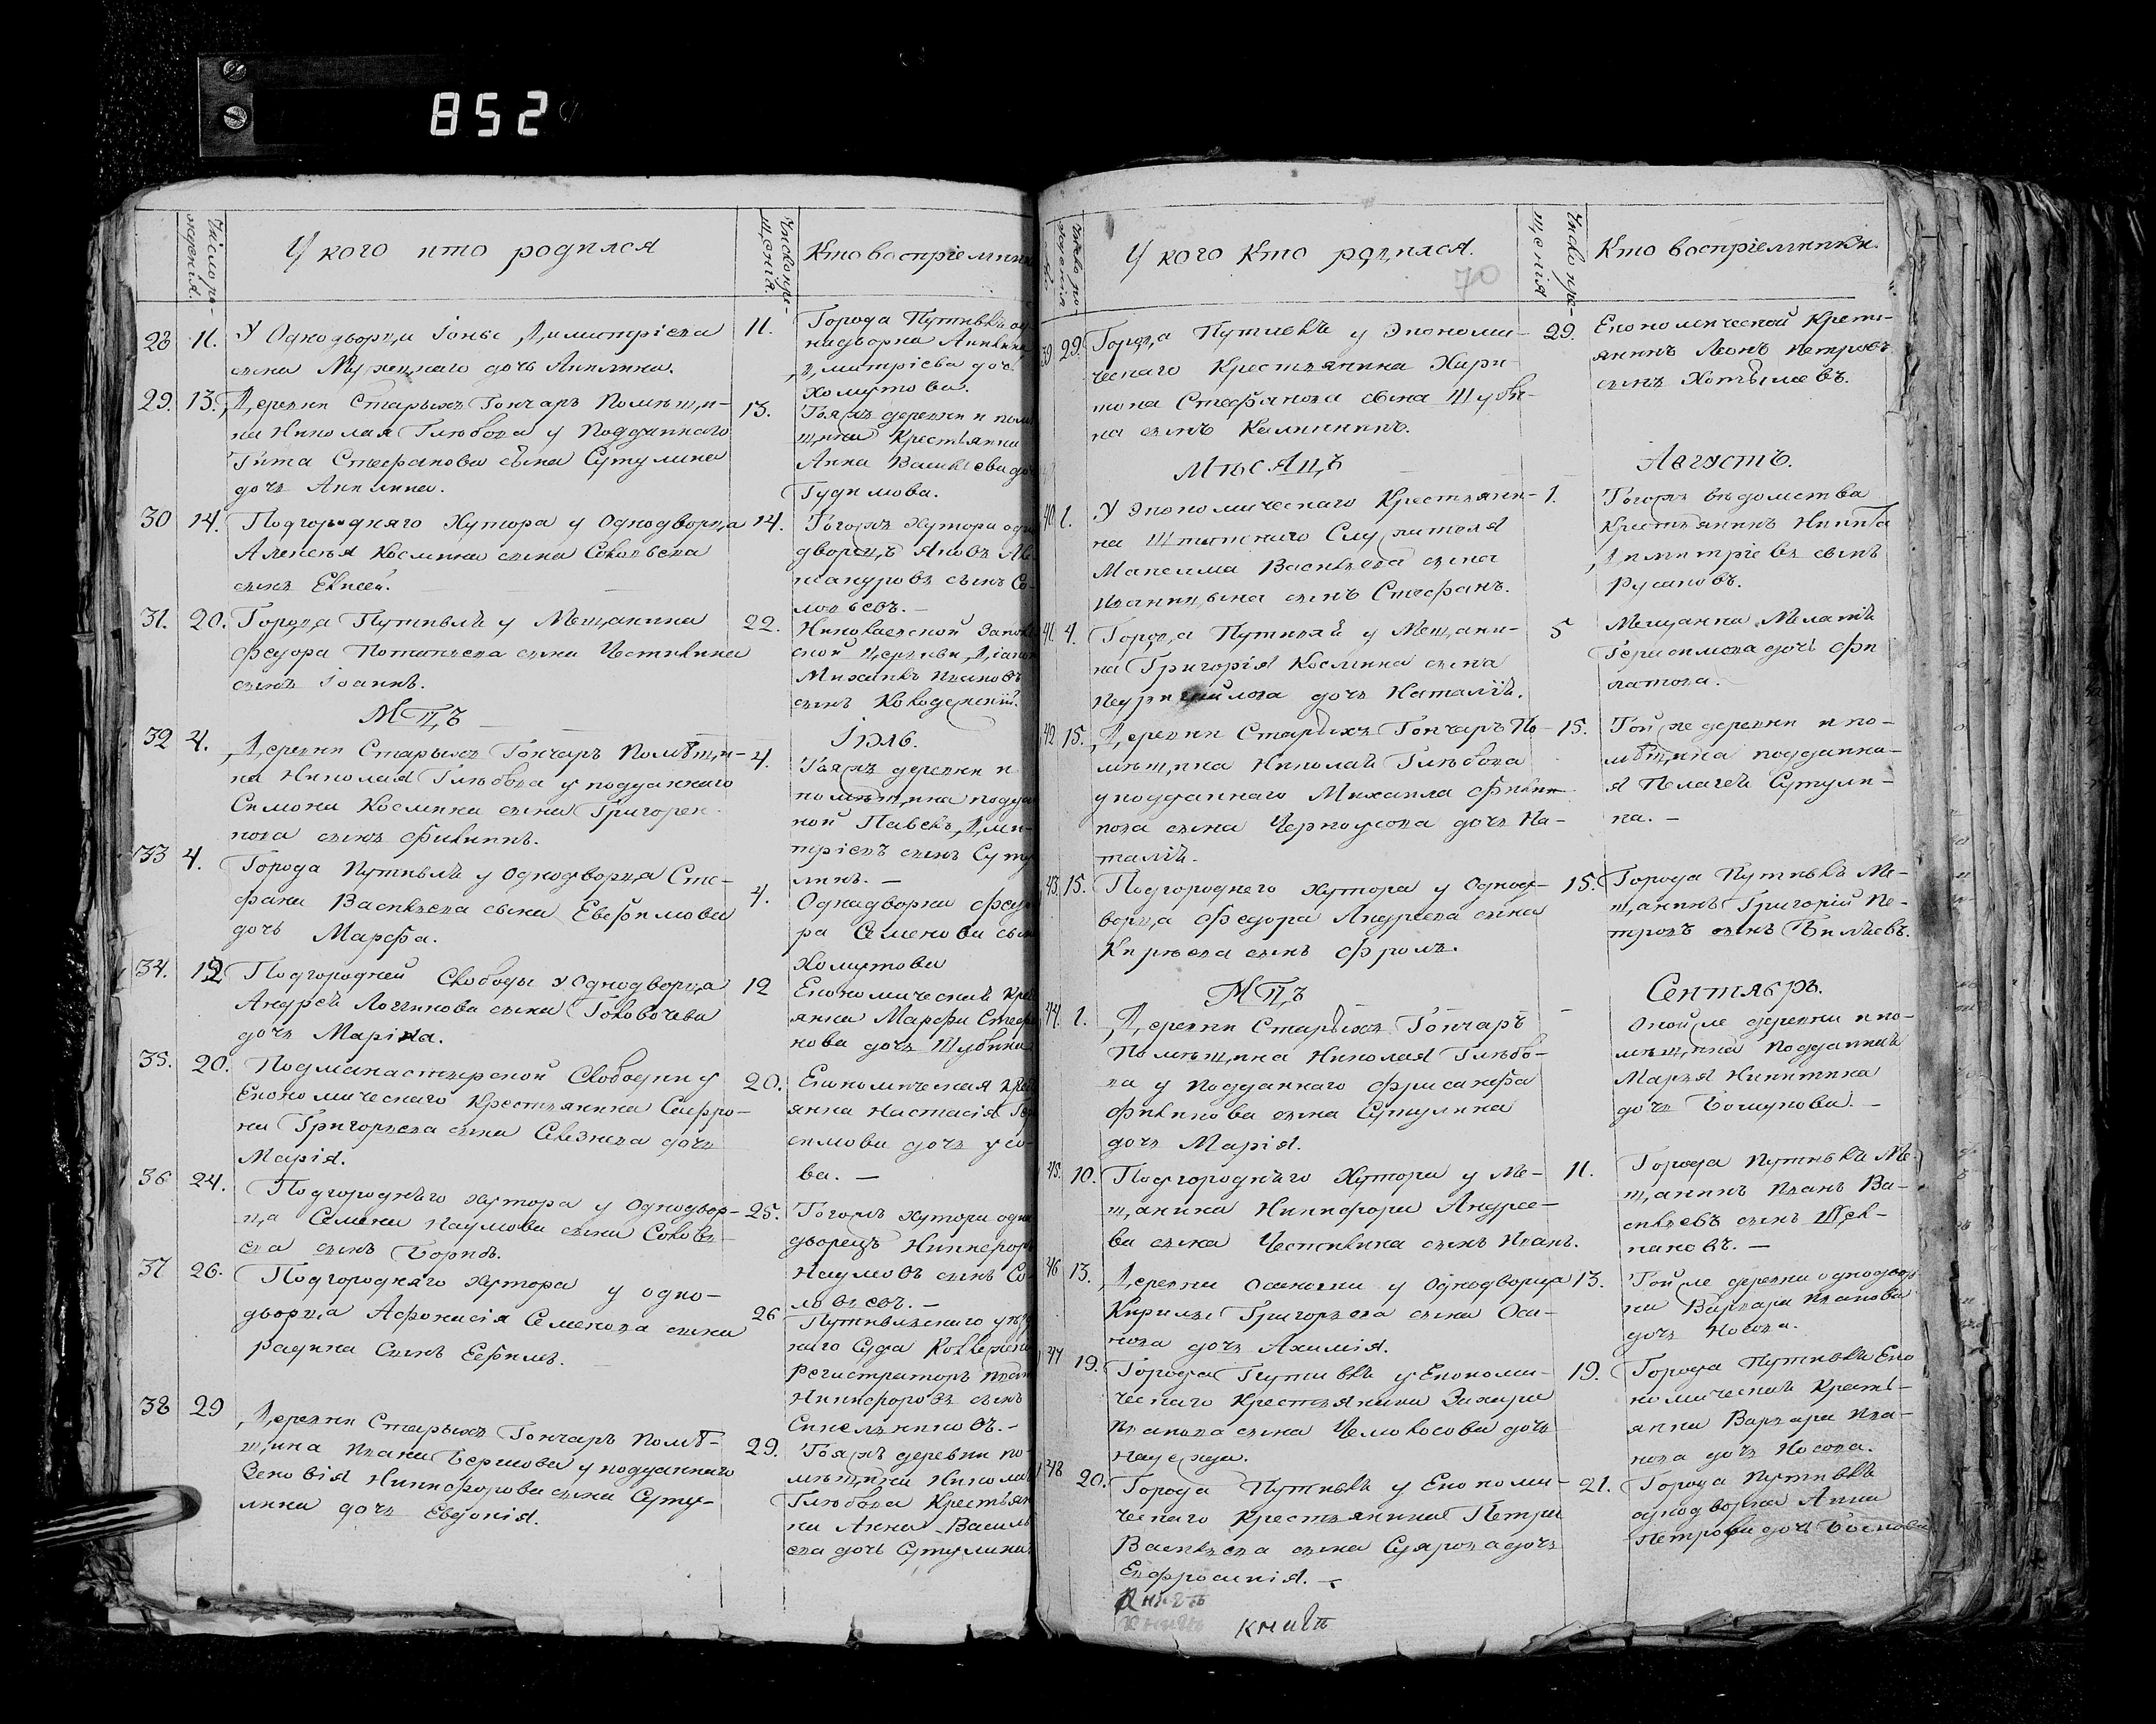 852
Число ро-
жденія.
У кого кто родился
Число кре-
щенія.
Кто воспріемники
28 11. У Однодворца Іоны Димитріева
сына дочь Акилина.
11. Города Путивля од
надворка Акилина
Димитріева доч
Холутова.
29. 13. Деревни Старыхъ Гончаръ Помѣщи-
ка Николая Глѣбова у Подданнаго
Тита Стефанова сына Сутулина
дочь Акилина.
13. Тояжъ деревни и пом
щика Крестьянка
Анна Васильева до
Гудимова.
30 14. Подгородняго Хутора у Однодворца
Алексѣя Космина сына Соловьева
сынъ Евсей.
14. Тогожъ Хутора одно
дворецъ Яковъ Але
ксандровъ сынъ Со-
ловьевъ. —
31. 20. Города Путивля у Мещанина
Федора Потапьева сына Честикина
сынъ Іоаннъ.
22. Николаевской
ской Церкви Діакон
Михаилъ Ивановъ
сынъ
МЦЪ
Іюль.
32 4. Деревни Старыхъ Гончаръ Помѣщи-
ка Николая Глѣбова у подданнаго
Симона Космина сына Григорен-
кова сынъ Филипъ.
4. Тояжъ деревни и
помѣщика подда
ной Павелъ Дми-
тріевъ сынъ Суту
линъ. —
33 4. Города Путивля у Однодворца Сте-
фана Васильева сына Евфимова
дочь Марфа.
4. Однадворка Федо
ра Семенова сына
Холутова
34. 12 Подгородней Слободы у Однодворца
Андрея Логгинова сына Головочева
дочь Марина.
12 Економической Крес
янка Марфа Стефа
нова дочь Шубина
35. 20. Подманастырской Слободки у
Економическаго Крестьянина Софро-
на Григорьева сына Селезнева дочь
Марія.
20. Економическая Крес
янка Настасія Гера
симова дочь Усо-
ва. —
36 24. Подгороднѣго хутора у Однодвор-
ца Семена Наумова сына Соловь-
ева сынъ Борисъ.
25. Тогожъ хутора одно
дворецъ Никифоръ
Наумовъ сынъ Со-
ловьевъ. —
37 26. Подгородняго Хутора у одно-
дворца Афонасія Семенова сына
Радина Сынъ Ефимъ.
26 Путивльскаго уѣз
наго Суда Коллежской
Регистраторъ Иван
Никифоровъ сынъ
Синельниковъ. —
38 29 Деревни Старыхъ Гончаръ Помѣ-
щика Ивана Бершова у подданнаго
Зеновія Никифорова сына Суту-
лина дочь Евдокія.
29. Тояжъ деревни по-
мѣщика Никола
Глѣбова Крестьян
ка Анна Василь
ева дочь Сутулина
Число ро-
жденія
У кого Кто родился.
70
Число кре-
щенія
Кто воспріемники.
39 29. Города Путивля у Экономи-
ческаго Крестьянина Хари-
тона Стефанова сына Шуби-
на сынъ Калинникъ.
29. Економической Крест-
янинъ Леонъ Петровъ
сынъ Хотылевъ.
Мѣсяцъ
Августъ.
40. 1. У Экономическаго Крестьяни-
на Штатнаго Служителя
Максима Васильева сына
Иваницына сынъ Стефанъ.
1. Тогожъ вѣдомства
Крестьянинъ Никита
Димитріевъ сынъ
Русановъ.
41. 4. Города Путивля у Мещани-
на Григорія Космина сына
Недригайлова дочь Наталія.
5 Мещанка Меланія
Герасимова дочь Фи
латова.
42. 15. Деревни Старыхъ Гончаръ По-
мѣщика Николая Глѣбова
у подданнаго Михаила Филип-
пова сына Черноусова дочь На-
талія.
15. Тойже деревни и по-
мѣщика подданна-
я Пелагея Сутули-
на. —
43. 15. Подгороднего хутора у Однод-
ворца Федора Андреева сына
Кирѣева сынъ Фролъ.
15. Города Путивля Ме-
щанинъ Григорій Пе-
тровъ сынъ Бѣляевъ.
МЦЪ
Сентябрь.
44. 1. Деревни Старыхъ Гончаръ
Помѣщика Николая Глѣбо-
ва у подданнаго Фрисанфа
Филипова сына Сутулина
дочь Марія.
Онойже деревни и по-
мѣщика Подданная
Марья Никитина
дочь Бошукова. —
45. 10. Подгороднѣго Хутора у Ме-
щанина Никифора Андрее-
ва сына Честикина сынъ Иванъ.
11. Города Путивля Ме-
щанинъ Иванъ Ва-
сильевъ сынъ Щел-
кановъ. —
46 13. Деревни у Однодворца
Кирилы Григорьева сына Оси-
пова дочь Акилія.
13. Тойже деревни однодвор
ка Варвара Иванова
дочь Носова.
47 19. Города Путивля у Економи-
ческаго Крестьянина Захара
Иванова сына Чемолосова дочь
Надежда.
19. Города Путивля Еко
номической Кресть-
янки Варвара Ива-
нова дочь Носова.
48 20. Города Путивля у Економи-
ческаго Крестьянина Петра
Васильева сына Суярова дочь
Евфросинія. —
21. Города Путивля
однодворка Анна
Петрова дочь
книга
книга книга